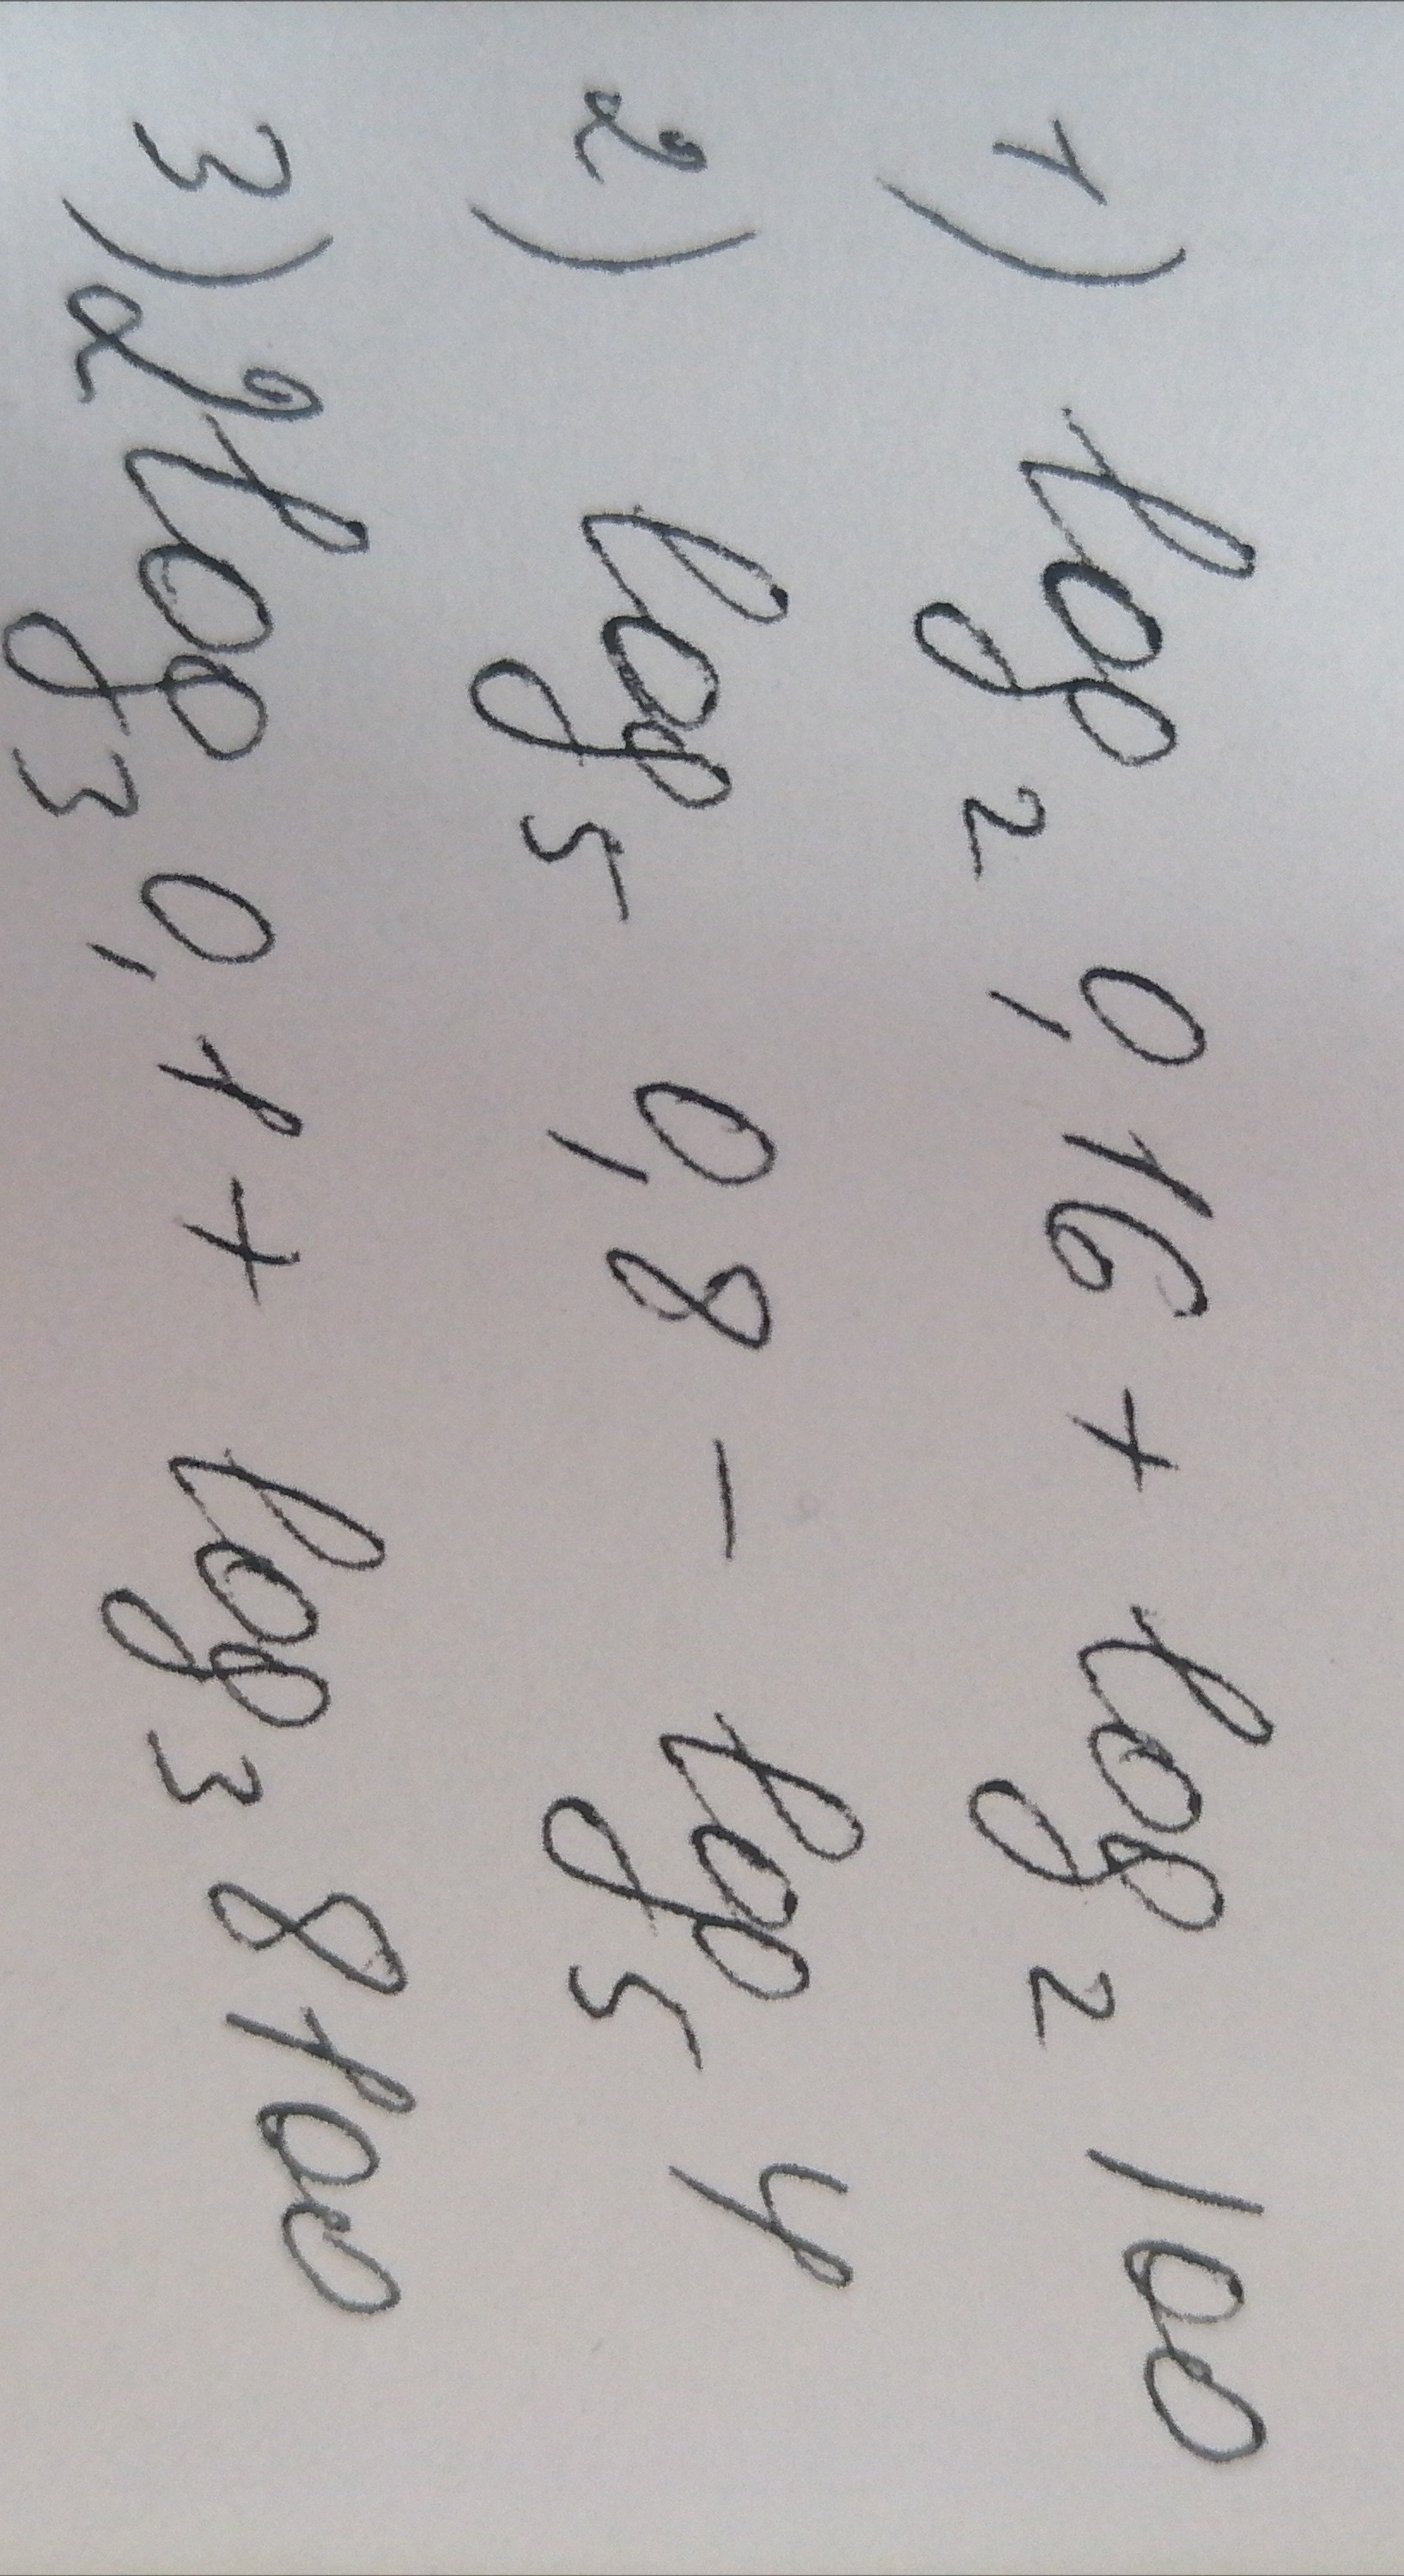 1) log₂ 0,16 + log₂ 100
2) log₅ 0,8 - log₅ 4
3) 2log₃ 0,1 + log₃ 8100